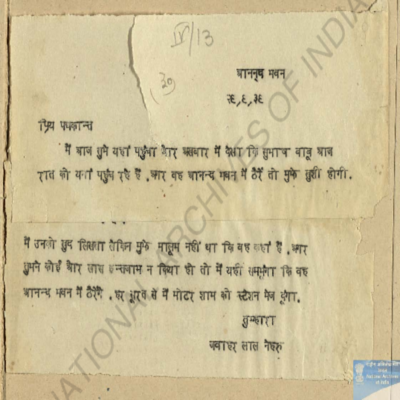 IV/13
आनन्द भवन
२६,६,३६
प्रिय पद्मकान्त
मैं आज सुबह यहां पहुंचा और अखबार में देखा कि सुभाष बाबू आज
रात को यहां पहुंच रहे हैं. अगर वह आनन्द भवन में ठैरें तो मुझे खुशी होगी.
मैं उनको खुद लिखता लेकिन मुझे मालूम नहीं था कि वह कहां हैं. अगर
तुमने कोई और खास इन्तजाम न किया हो तो मैं यही समझूंगा कि वह
आनन्द भवन में ठैरेंगे. हर सूरत से मैं मोटर शाम को स्टेशन भेज दूंगा.
तुम्हारा
जवाहर लाल नेहरू
NATIONAL ARCHIVES OF INDIA